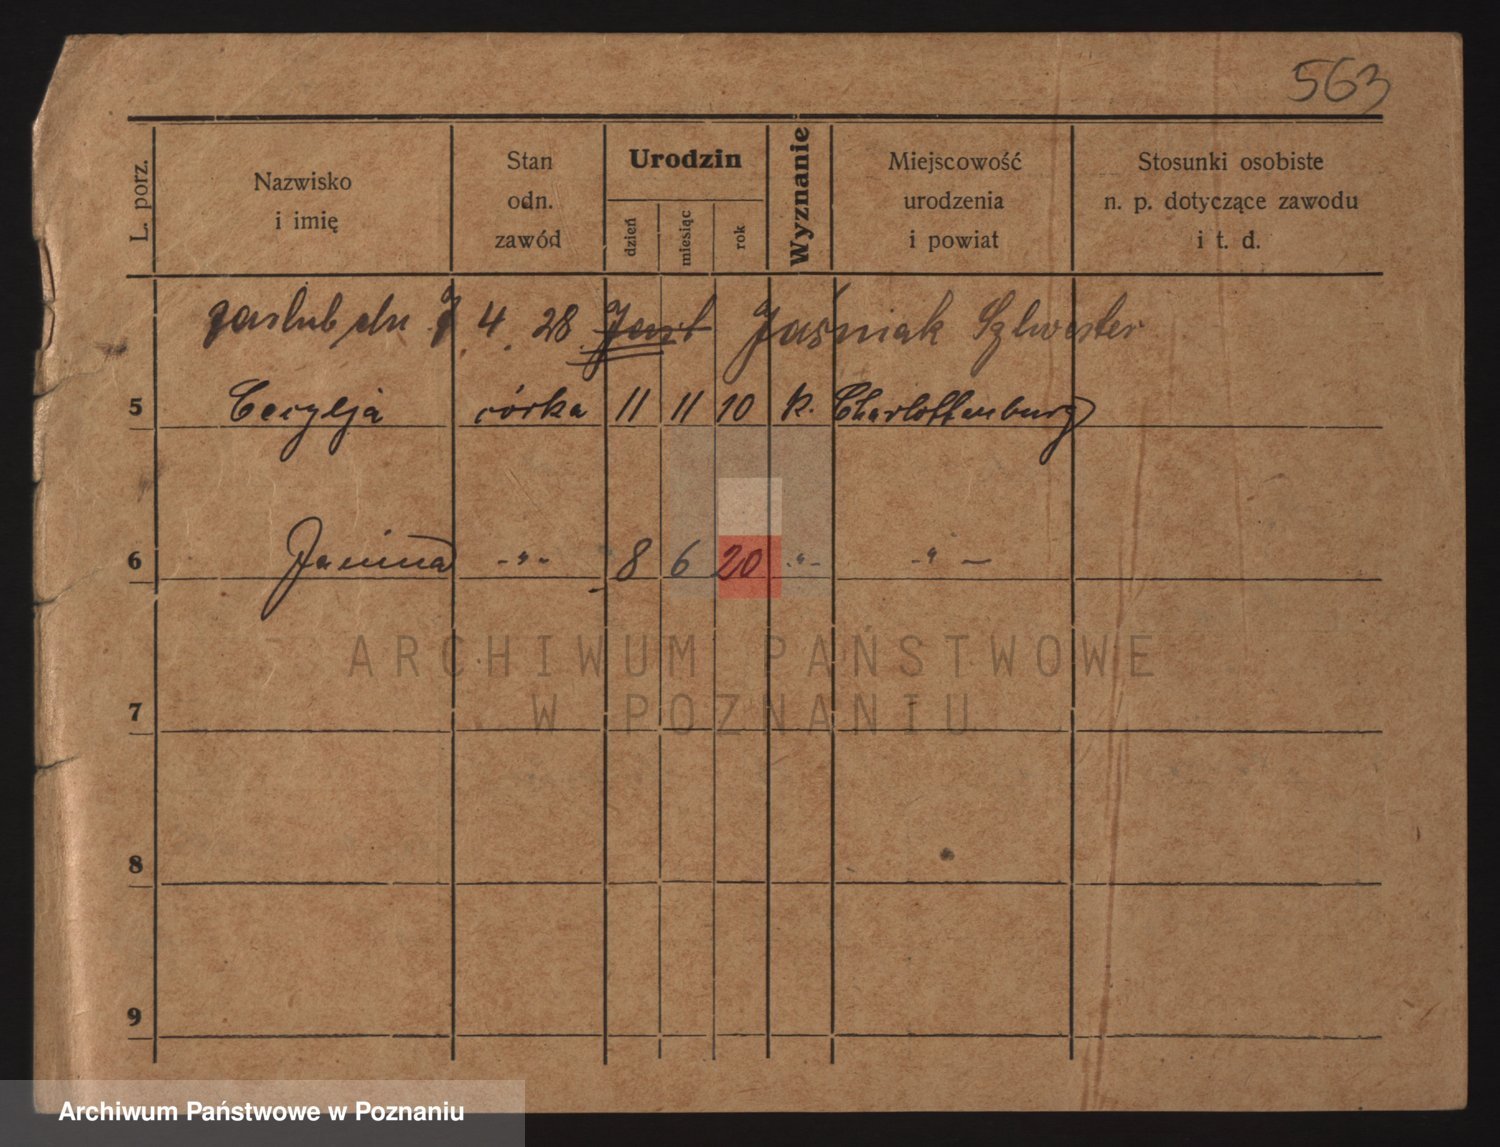 563
L. porz.
Nazwisko
i imię
Stan
odn.
zawód
Urodzin
dzień
miesiąc
rok
Wyznanie
Miejscowość
urodzenia
i powiat
Stosunki osobiste
n. p. dotyczące zawodu
i t. d.
4. 28 Jaśniak Sylwester
5 Cecylja córka 11 11 10 k. Charlottenburg
6 Janina -"- 8 6 20 -"- -"-
ARCHIWUM PAŃSTWOWE
W POZNANIU
7
8
9
Archiwum Państwowe w Poznaniu